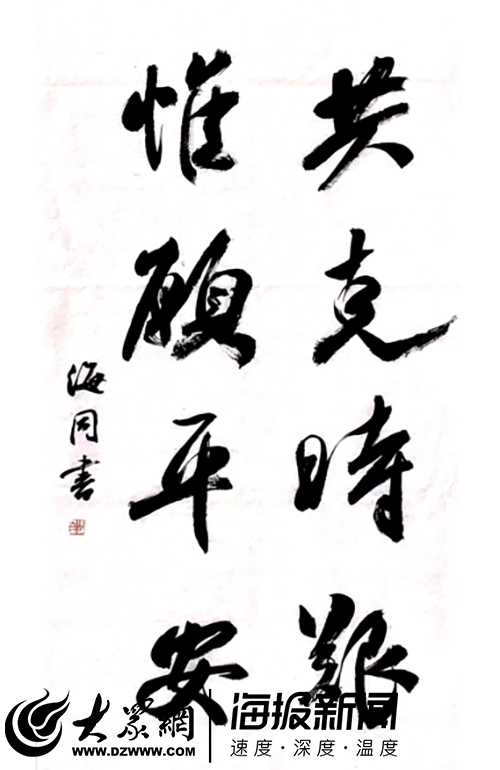 共克时艰
惟願平安
海同書
大眾網
www.DZWWW.com
海报新闻
速度·深度·温度